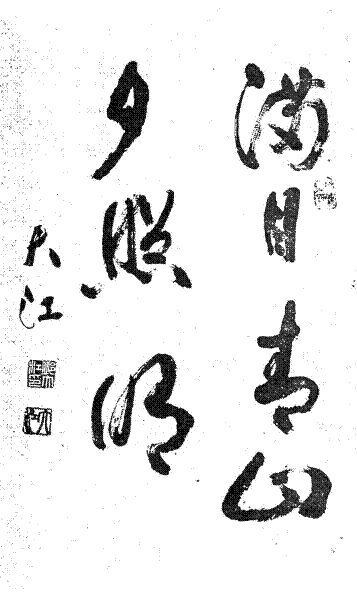 满目青山
夕照明
大江